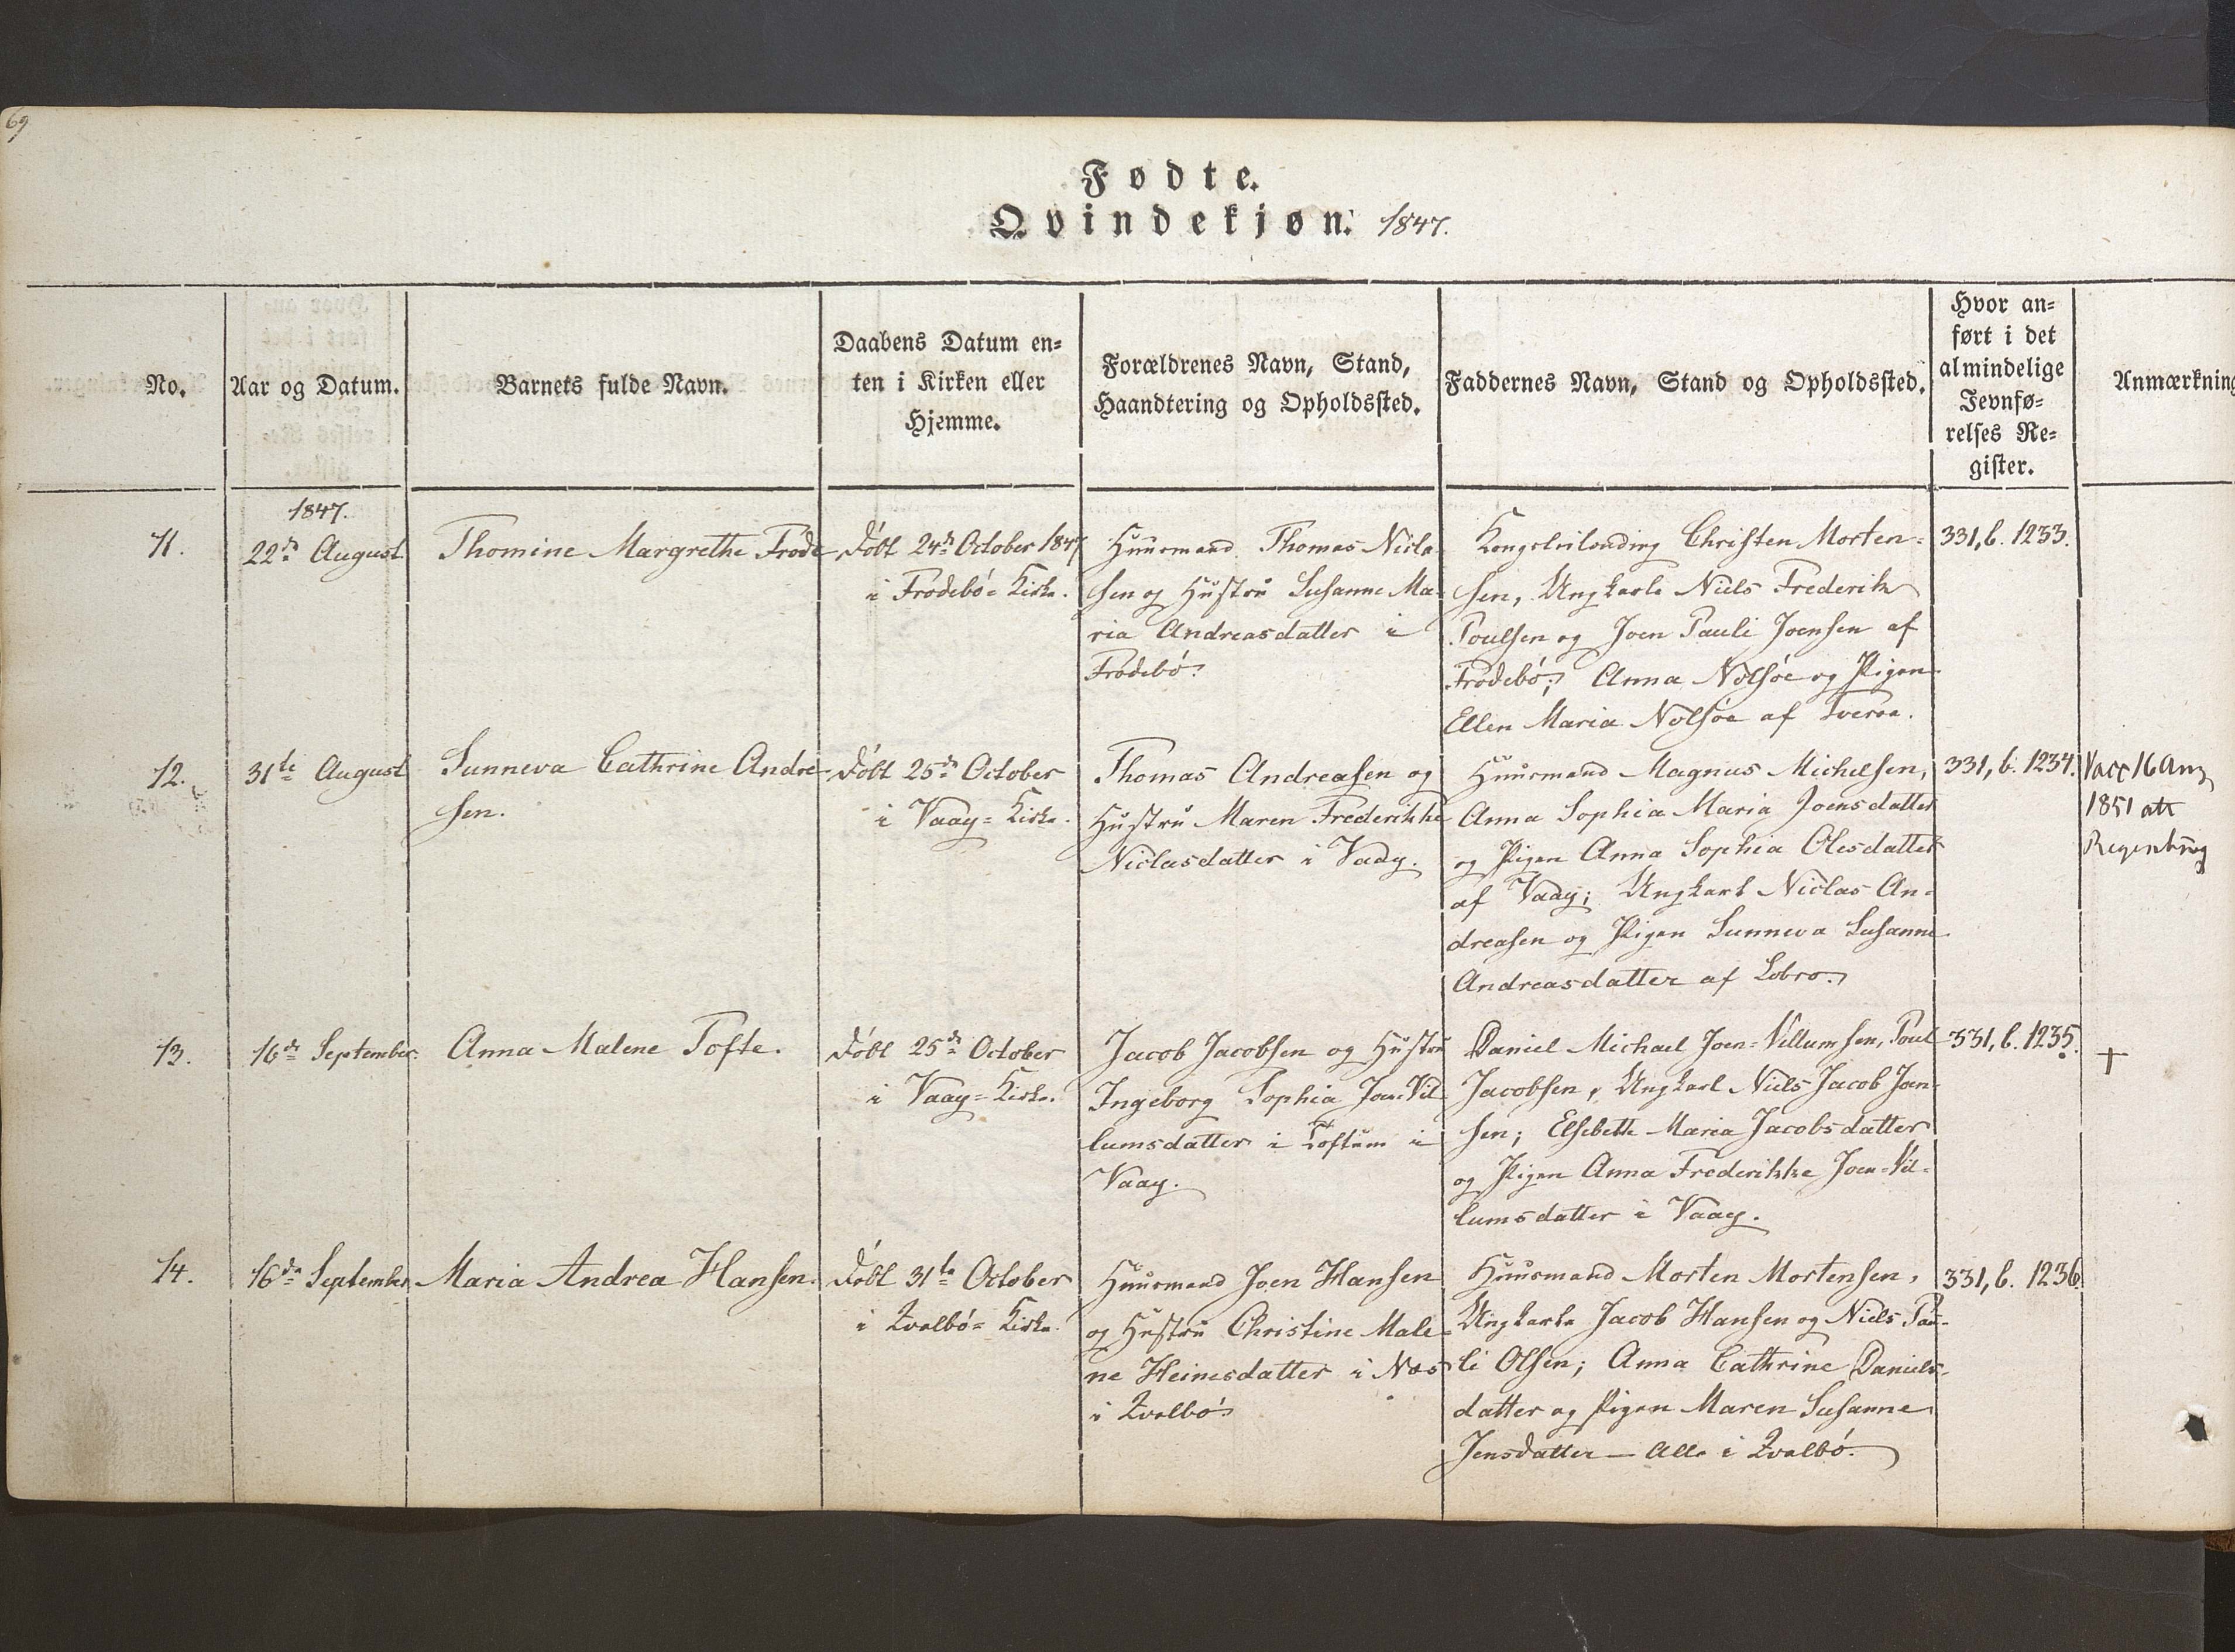 69
Fødte.
Qvindekjøn. 1847.
No.
Aar og Datum.
Barnets fulde Navn.
Daabens Datum en=
ten i Kirken eller
Hjemme.
Forældrenes Navn, Stand,
Haandtering og Opholdssted.
Faddernes Navn, Stand og Opholdssted.
Hvor an=
ført i det
almindelige
Jevnfø=
relses Re=
gister.
Anmærkning
1847.
11.
22de August
Thomine Margrethe Frode
Döbt 24de October 1847
i Frodebö= Kirke.
Huusmand Thomas Nicla
sen og Hustru Susanne Ma=
ria Andreasdatter i
Frodebö.
Christen Morten=
sen, Ungkarle Niels Frederik
Poulsen og Joen Pauli Joensen af
Frodebö; Anna Nolsöe og Pigen
Ellen Maria Nolsöe af Tveraa.
331, b. 1233.
12.
31te August
Sunneva Cathrine Andre=
sen.
Döbt 25de October
i Vaag= Kirke.
Thomas Andreasen og
Hustru Maren Frederikke
Niclasdatter i Vaag.
Huusmand Magnus Michelsen,
Anna Sophia Maria Joensdatter
og Pigen Anna Sophia Olesdatter
af Vaag; Ungkarl Niclas An=
dreasen og Pigen Sunneva Susanne
Andreasdatter af Lobro.
331, b. 1234.
Vacc 16 Aug
1851 att
Regenburg
13.
16de September
Anna Malene Tofte.
Döbt 25de October
i Vaag= Kirke.
Jacob Jacobsen og Hustru
Ingeborg Sophia Joen-Vil
lumsdatter i Toftum i
Vaag.
Daniel Michael Joen= Villumsen, Poul
Jacobsen, Ungkarl Niels Jacob Joen=
sen; Elsebeth Maria Jacobsdatter
og Pigen Anna Frederikke Joen=Vil=
lumsdatter i Vaag.
331, b. 1235.
+
14.
16de September
Maria Andrea Hansen.
Döbt 31te October
i Qvalbö= Kirke.
Huusmand Joen Hansen
og Hustru Christine Male=
ne Heinesdatter i Næs
i Qvalbö.
Huusmand Morten Mortensen,
Ungkarle Jacob Hansen og Niels Pau=
li Olsen; Anna Cathrine Daniels=
datter og Pigen Maren Susanne
Jensdatter — Alle i Qvalbö.
331, b. 1236.